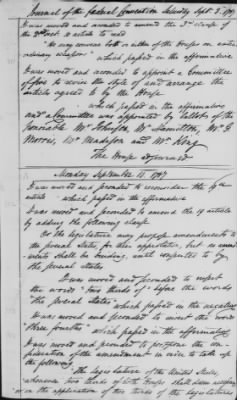 Journal of the federal Convention Saturday Sept. 8. 1787
It was moved and seconded to amend the 3rd clause of
the 2nd sect. X article to read
"He may convene both or either of the Houses on extra-
ordinary occasions" which passed in the affirmative
It was moved and seconded to appoint a Committee
of five to revise the style of and arrange the
articles agreed to by the House
which passed in the affirmative
and a Committee was appointed by ballot of the
honorable Mr Johnson, Mr Hamilton, Mr G
Morris, Mr Madison and Mr King
The House adjourned
Monday September 10. 1787
It was moved and seconded to reconsider the 19th
article which passed in the affirmative
It was moved and seconded to amend the 19 article
by adding the following clause
Or the Legislature may propose amendments to
the several States for their approbation, but no amend-
ments shall be binding until consented to by
the several States
It was moved and seconded to insert
the words "two thirds of" before the words
"the several States" which passed in the negative
It was moved and seconded to insert the words
"three fourths" which passed in the affirmative
It was moved and seconded to postpone the con-
sideration of the amendment in order to take up
the following
"the Legislature of the United States,
whenever two thirds of both Houses shall deem necessary
or on the application of two thirds of the Legislatures